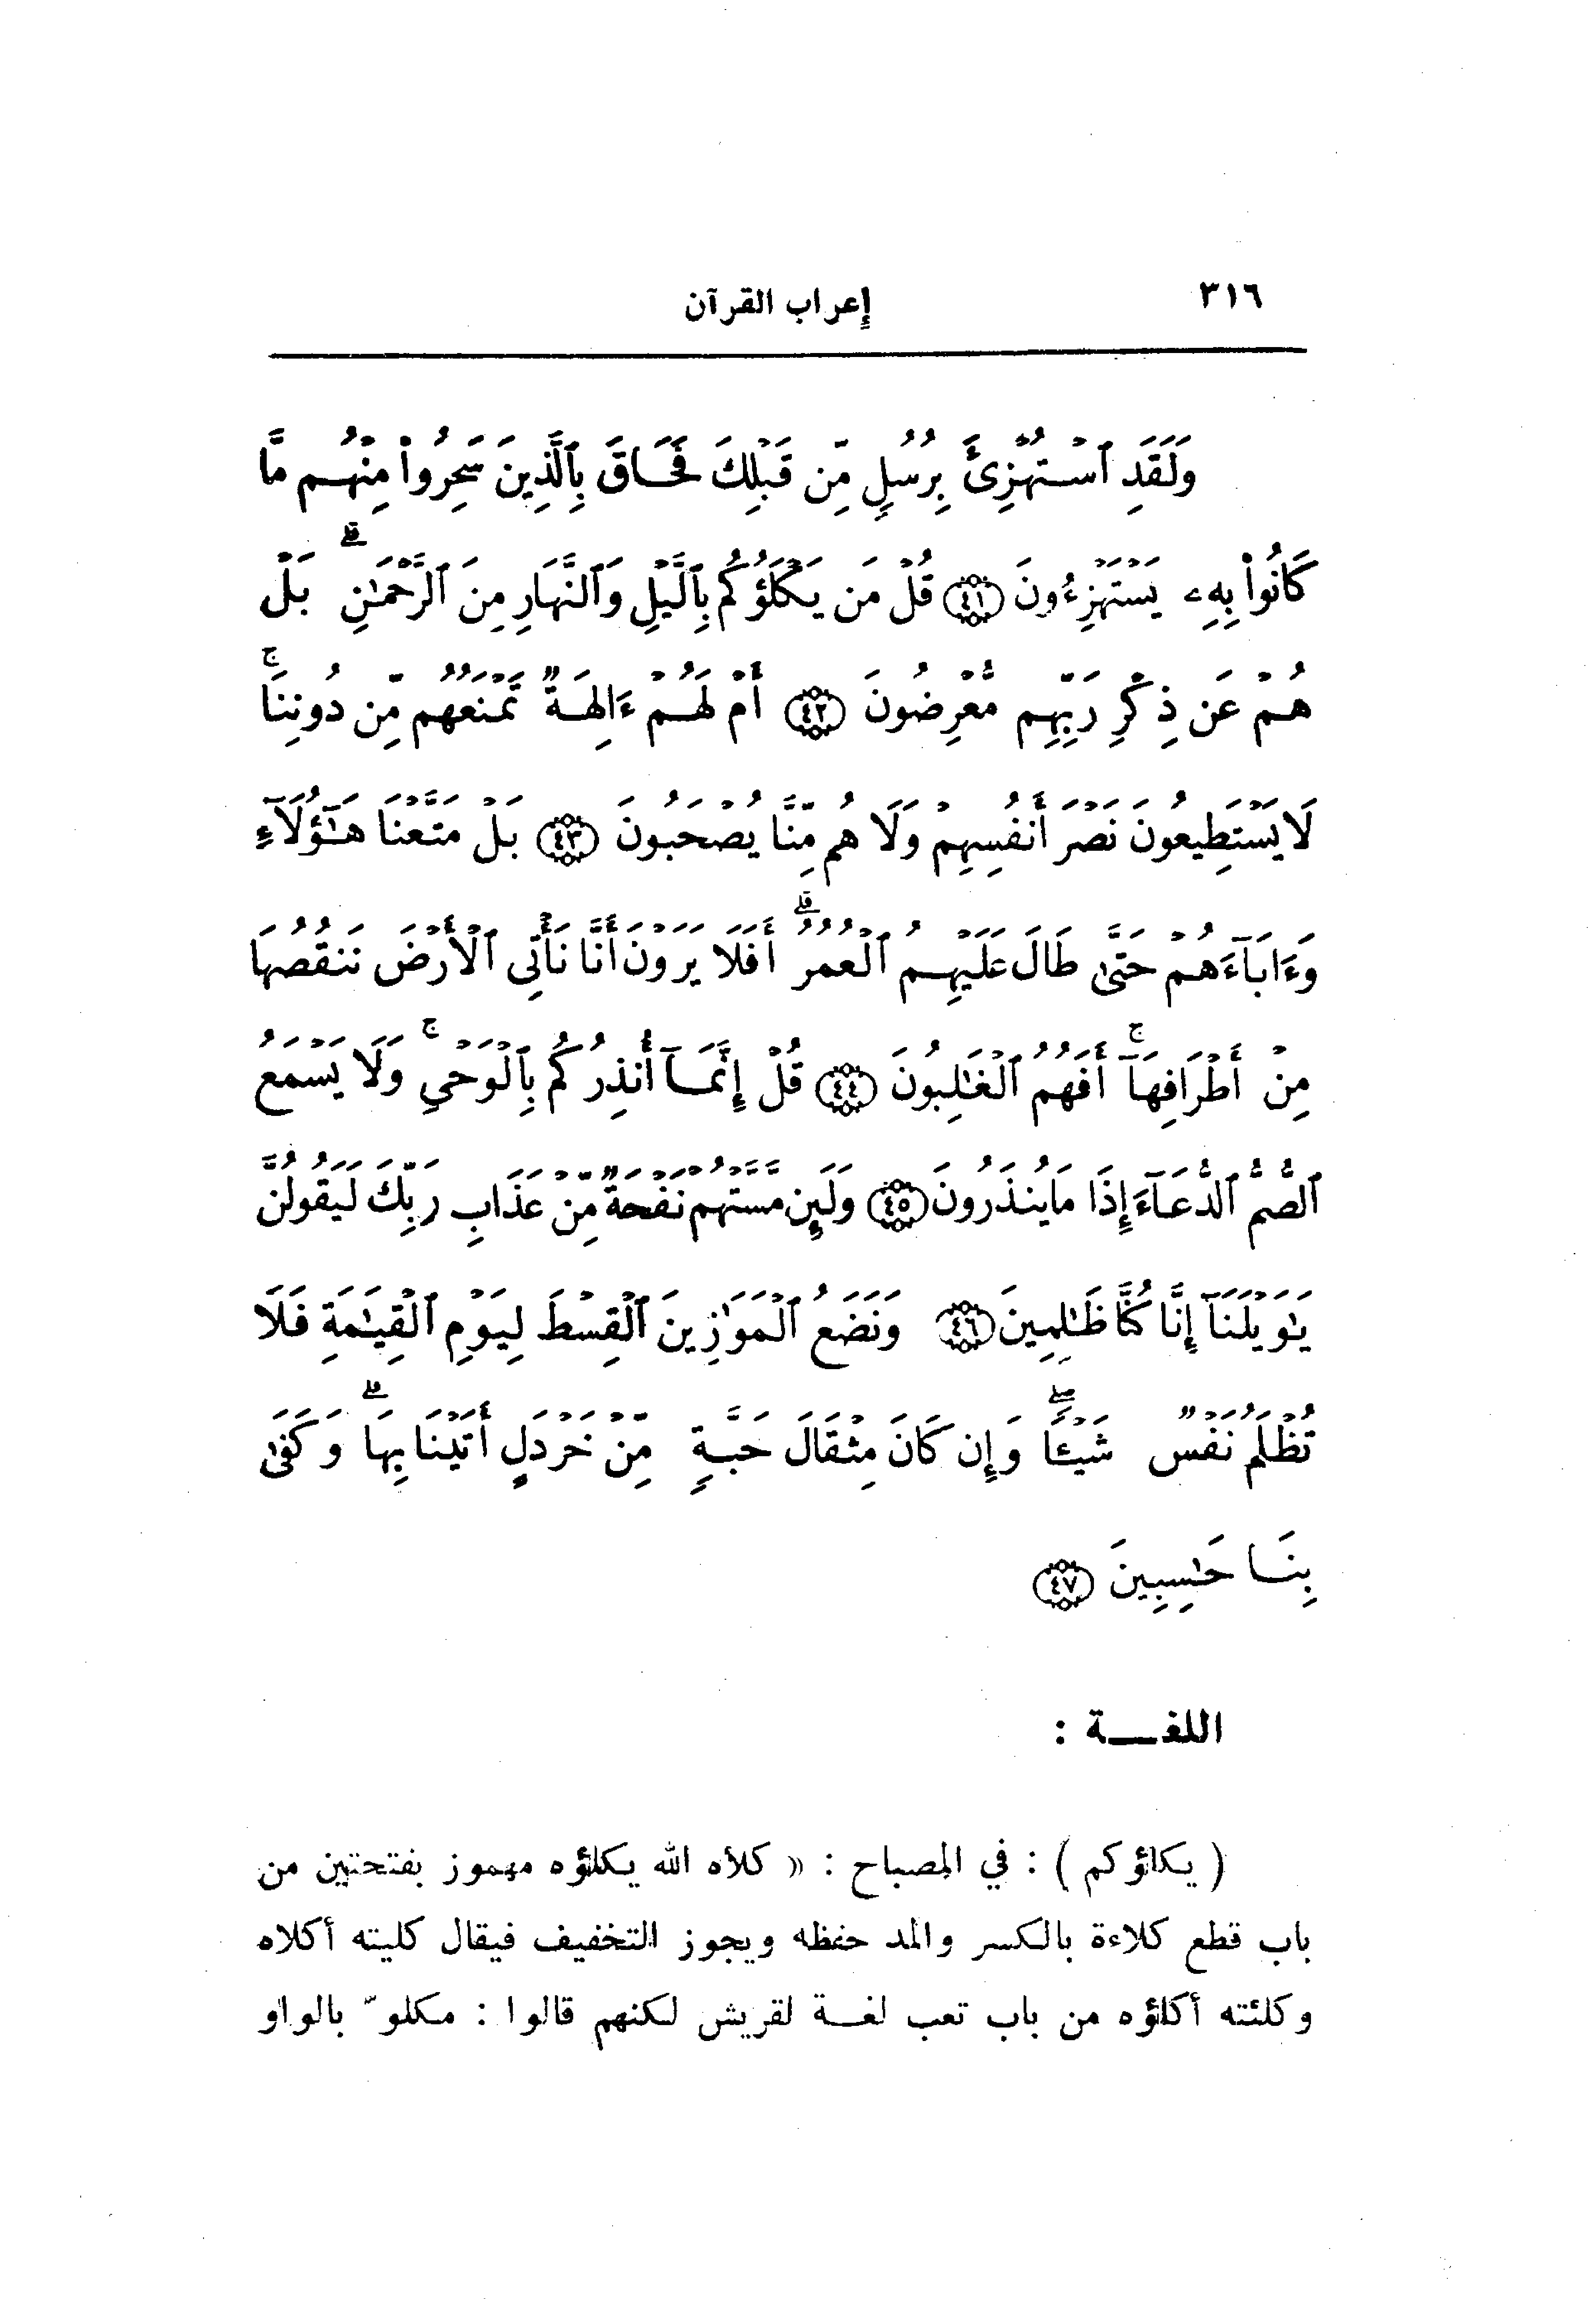 ٣١٦
إعراب القرآن
وَلَقَدِ ٱسْتُهْزِئَ بِرُسُلٍ مِّن قَبْلِكَ فَحَاقَ بِٱلَّذِينَ سَخِرُوا۟ مِنْهُم مَّا
كَانُوا۟ بِهِۦ يَسْتَهْزِءُونَ ﴿٤١﴾ قُلْ مَن يَكْلَؤُكُم بِٱلَّيْلِ وَٱلنَّهَارِ مِنَ ٱلرَّحْمَـٰنِ ۗ بَلْ
هُمْ عَن ذِكْرِ رَبِّهِم مُّعْرِضُونَ ﴿٤٢﴾ أَمْ لَهُمْ ءَالِهَةٌ تَمْنَعُهُم مِّن دُونِنَا ۚ
لَا يَسْتَطِيعُونَ نَصْرَ أَنفُسِهِمْ وَلَا هُم مِّنَّا يُصْحَبُونَ ﴿٤٣﴾ بَلْ مَتَّعْنَا هَـٰٓؤُلَآءِ
وَءَابَآءَهُمْ حَتَّىٰ طَالَ عَلَيْهِمُ ٱلْعُمُرُ ۗ أَفَلَا يَرَوْنَ أَنَّا نَأْتِى ٱلْأَرْضَ نَنقُصُهَا
مِنْ أَطْرَافِهَآ ۚ أَفَهُمُ ٱلْغَـٰلِبُونَ ﴿٤٤﴾ قُلْ إِنَّمَآ أُنذِرُكُم بِٱلْوَحْىِ ۚ وَلَا يَسْمَعُ
ٱلصُّمُّ ٱلدُّعَآءَ إِذَا مَا يُنذَرُونَ ﴿٤٥﴾ وَلَئِن مَّسَّتْهُمْ نَفْحَةٌ مِّنْ عَذَابِ رَبِّكَ لَيَقُولُنَّ
يَـٰوَيْلَنَآ إِنَّا كُنَّا ظَـٰلِمِينَ ﴿٤٦﴾ وَنَضَعُ ٱلْمَوَٰزِينَ ٱلْقِسْطَ لِيَوْمِ ٱلْقِيَـٰمَةِ فَلَا
تُظْلَمُ نَفْسٌ شَيْـًٔا ۖ وَإِن كَانَ مِثْقَالَ حَبَّةٍ مِّنْ خَرْدَلٍ أَتَيْنَا بِهَا ۗ وَكَفَىٰ
بِنَا حَـٰسِبِينَ ﴿٤٧﴾
اللغـــة :
( يكلؤكم ) : في المصباح : « كلأه الله يكلؤه مهموز بفتحتين من
باب قطع كلاءة بالكسر والمد حفظه ويجوز التخفيف فيقال كليته أكلاه
وكلئته أكلؤه من باب تعب لغــة لقريش لكنهم قالوا : مكلوّ بالواو